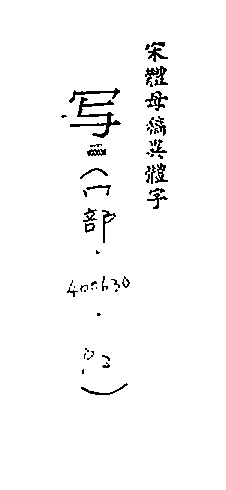 宋體母稿異體字
写(冖部.400630.)